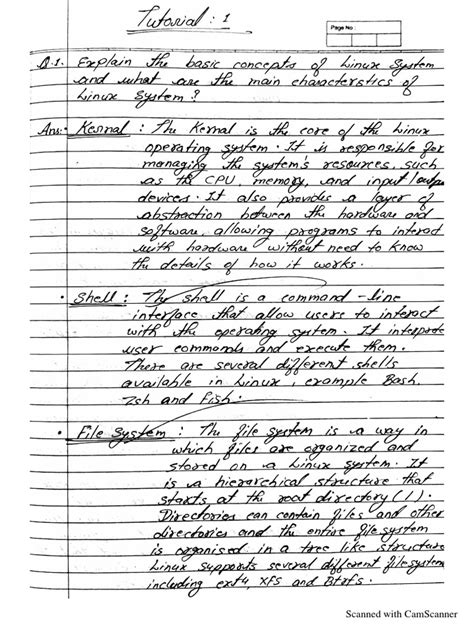 Tutorial : 1
Page No :
Q.1. Explain the basic concepts of Linux System
and what are the main characterstics of
Linux System ?
Ans: Kernal : The Kernal is the core of the Linux
operating system. It is responsible for
managing the system's resources, such
as the CPU, memory, and input/output
devices. It also provides a layer of
abstraction between the hardware and
software, allowing programs to interact
with hardware without need to know
the details of how it works.
• Shell : The shell is a command-line
interface that allow users to interact
with the operating system. It interprets
user commands and execute them.
There are several different shells
available in Linux, example Bash,
Zsh and Fish.
• File System : The file system is a way in
which files are organized and
stored on a Linux system. It
is a hierarchical structure that
starts at the root directory (/).
Directories can contain files and other
directories and the entire file system
is organised in a tree like structure
Linux supports several different file system
including ext4, XFS and Btrfs.
Scanned with CamScanner